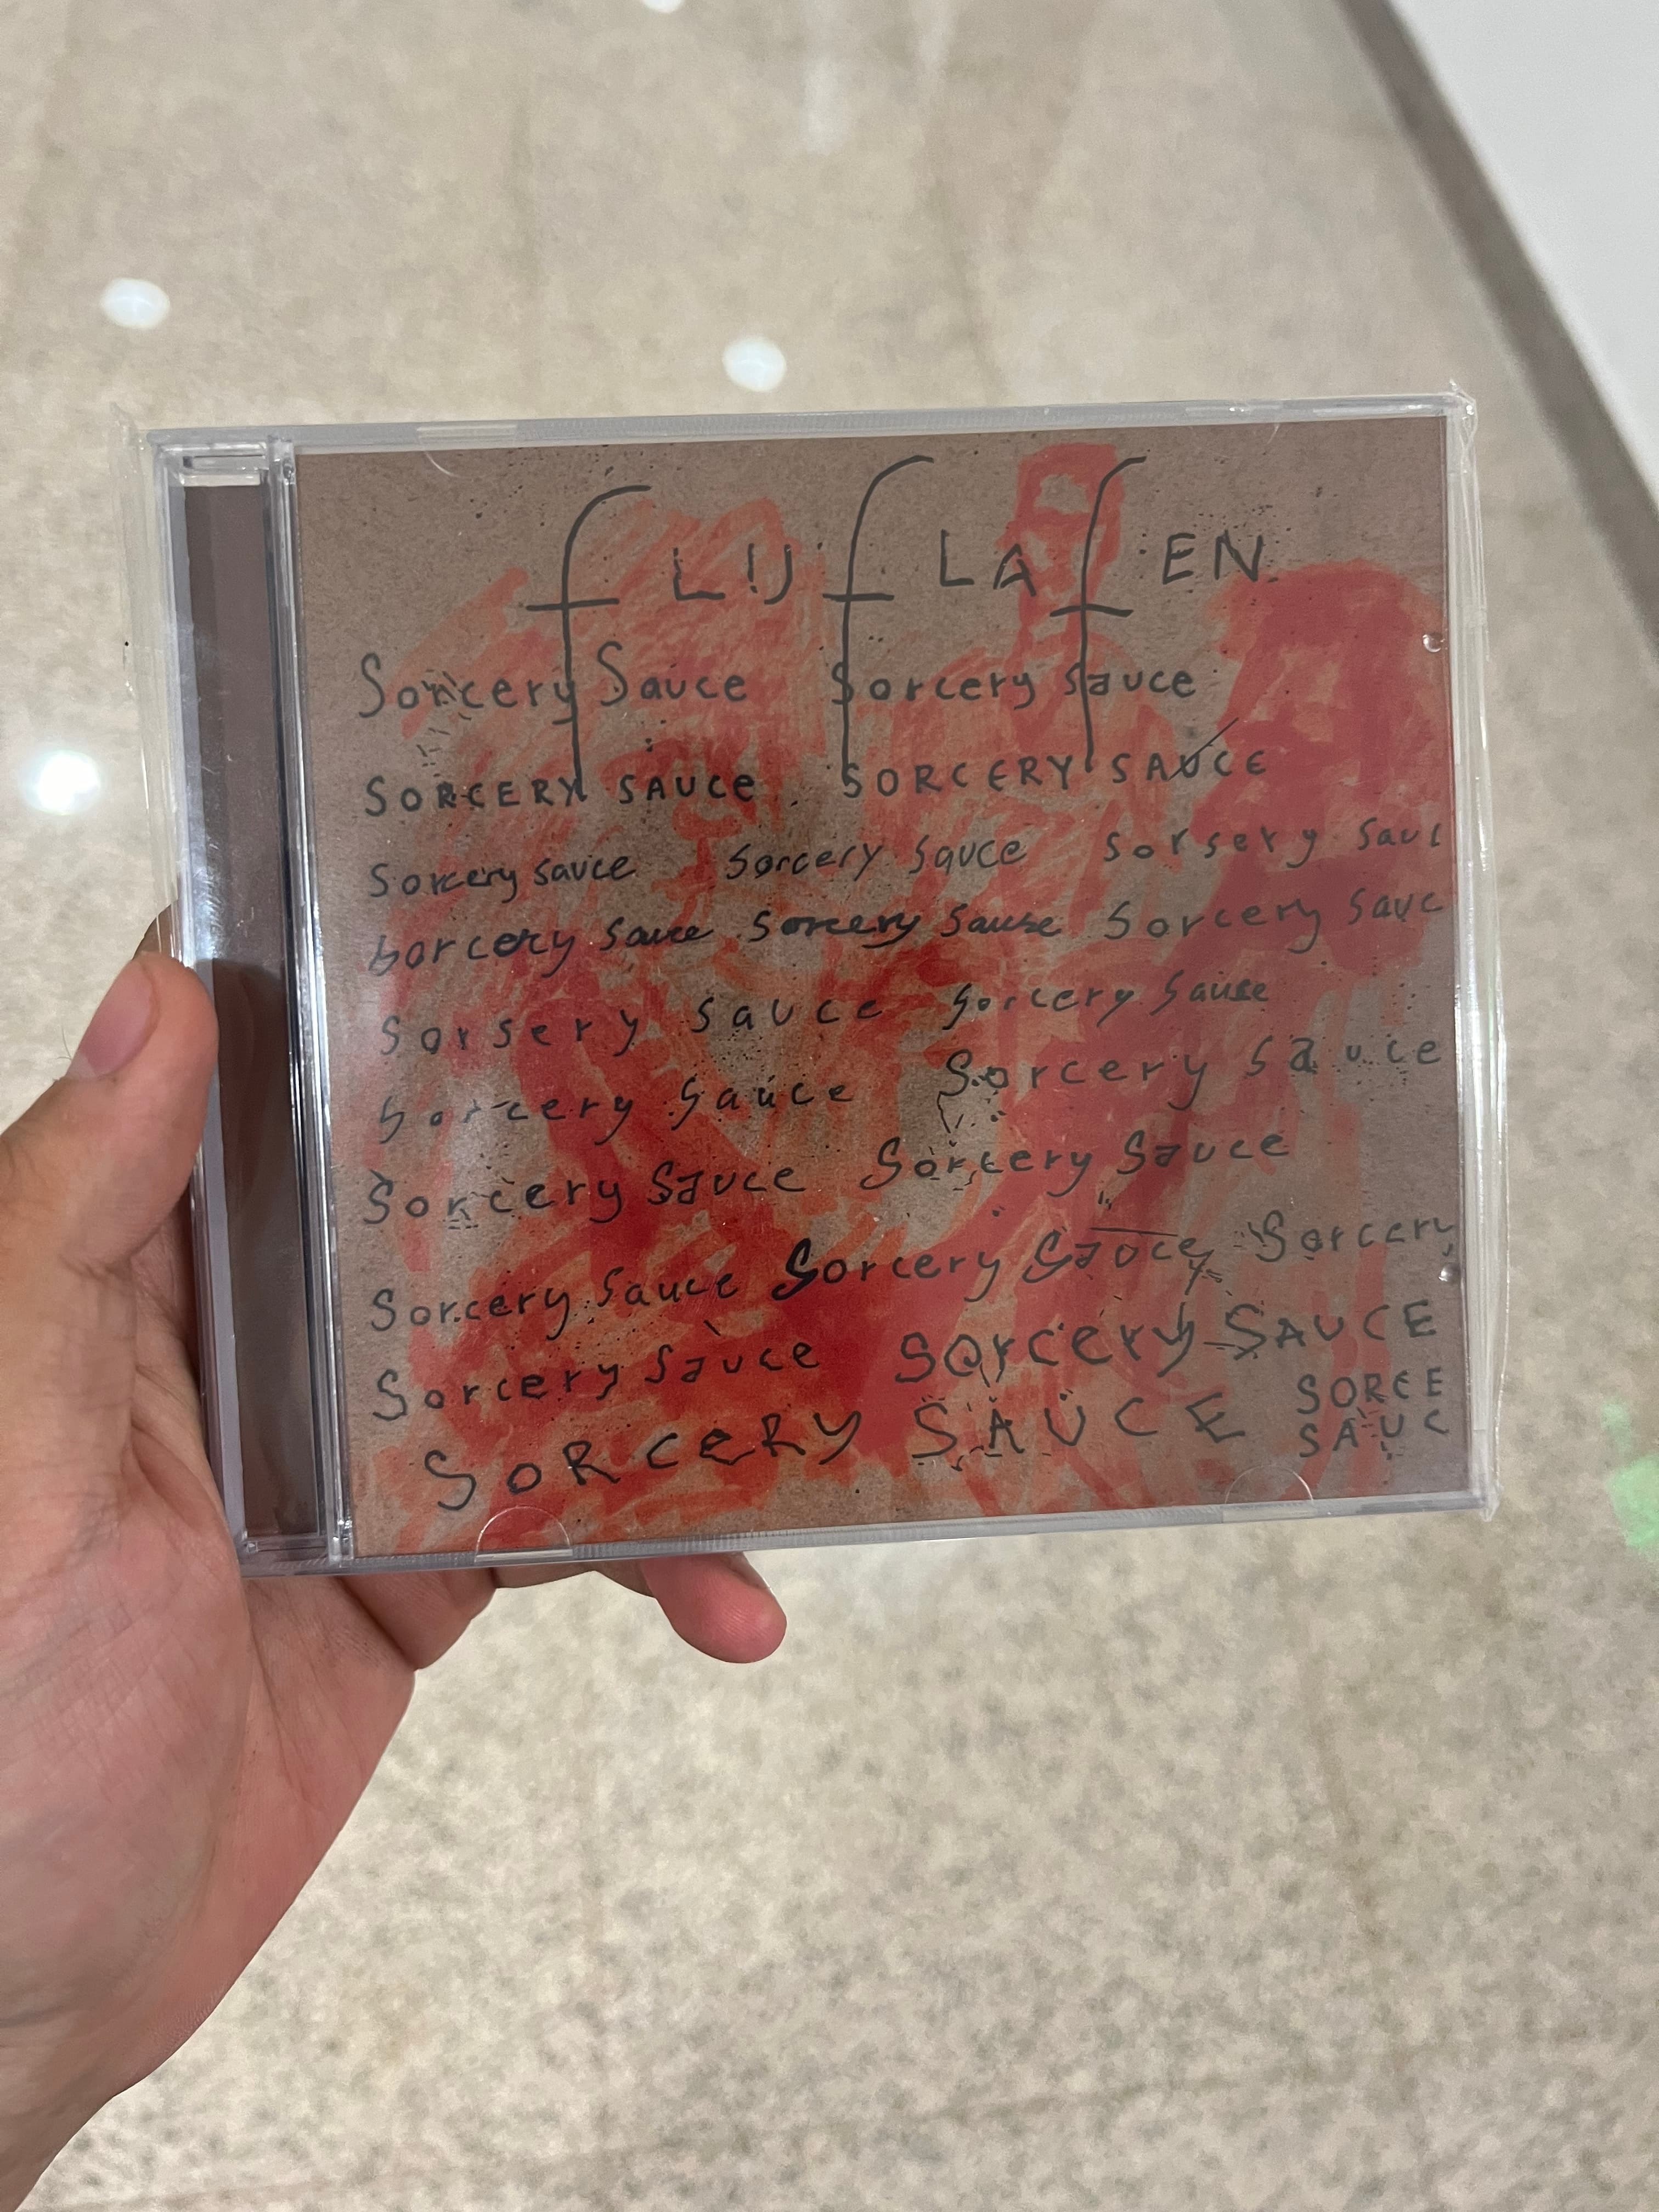 fLIJfLAfEN
Sorcery Sauce Sorcery sauce
SORCERY SAUCe SORCERY SAUCE
Sorcery sauce Sorcery Sauce Sorsery Sauc
Sorcery Sauce Sorcery Sause Sorcery Sauc
Sorsery Sauce Sorcery Sause
Sorcery Sauce Sorcery Sauce
Sorcery Sauce Sorcery Sauce
Sorcery Sauce Sorcery Sauce Sorcery
Sorcery Sauce Sorcery SAUCE
SORCeRY SAUCE SORCE
SAUC